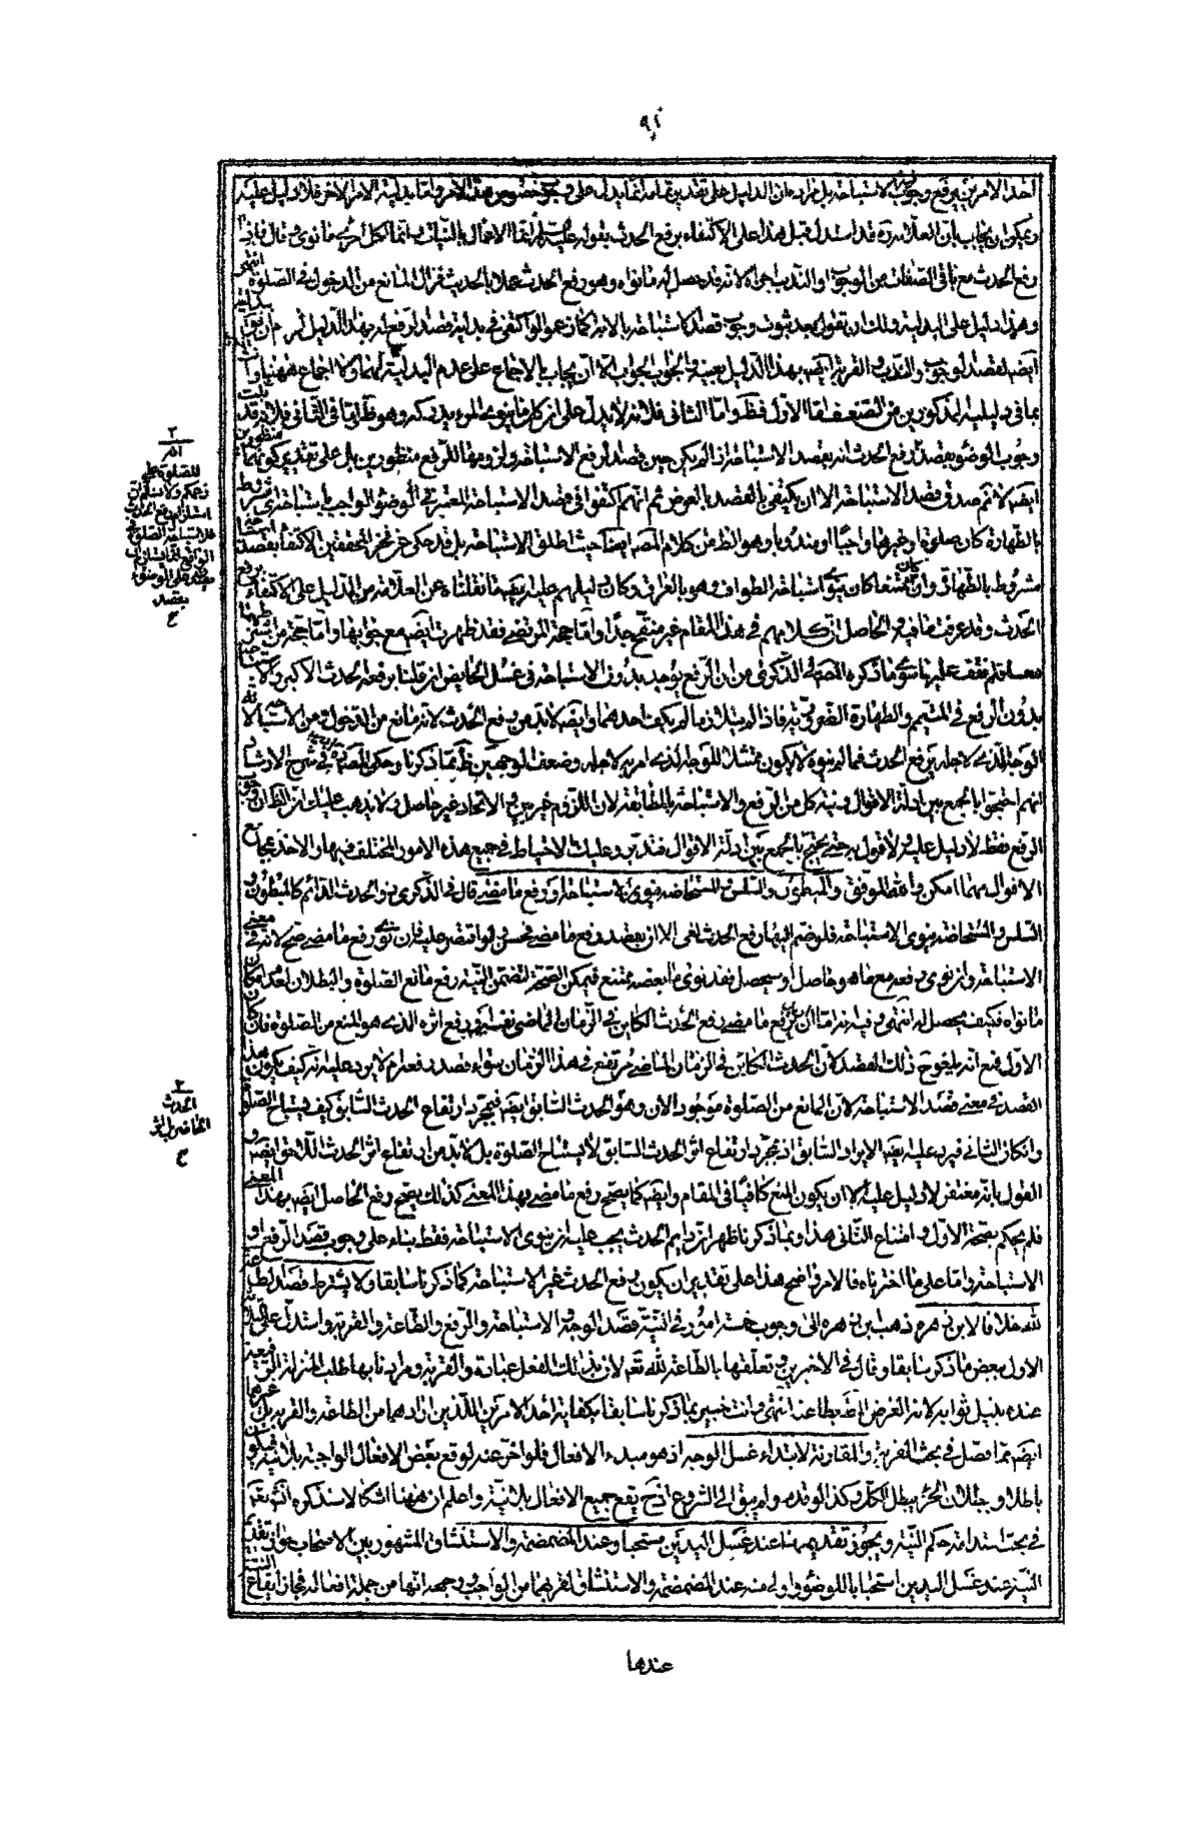 احد الامرين يرفع وجوب الاستباحة بل مراده ان الدليل على تقدير تمامه انما يدل على وجوب خصوص هذا الامر واما بدلية الامر الاخر فلا دليل عليه
ويمكن ان يجاب بان العلامة ره قد استدل قبل هذا على الاكتفاء برفع الحدث بقوله عليه السلام انما الاعمال بالنيات وانما لكل امرئ ما نوى وقال فاذا نوى
رفع الحدث مع باقى الصفات من الوجوب او الندب اجزأه لانه قد حصل له ما نواه وهو رفع الحدث عملا بالحديث فزال المانع من الدخول فى الصلوة انتهى
وهذا دليل على البدلية ولك ان تقول بعد ثبوت وجوب قصد الاستباحة بالاية كان عموا لواكتفى فى بدلية قصد الرفع له بهذا الدليل لزم ان يقول ببدلية
ايضا لقصد الوجوب والندب والقربة ايضا بهذا الدليل بعينه والجواب الجواب الا ان يجاب بالاجماع على عدم البدلية ثمة ولا اجماع ههنا
بما فى دليليه المذكورين من الضعف اما الاول فظ واما الثانى فلانه لا يدل على ان كل ما ينويه المرء يدركه وهو ظ
وجوب الوضوء بقصد رفع الحدث انه بقصد الاستباحة اذ لم يكن حين قصد الرفع الاستباحة ولزومها للرفع منظورين بل على تقدير كونهما منظورين
ايضا لا نم صدق قصد الاستباحة الا ان يكتفى بالقصد بالعرض ثم انهم اكتفوا فى قصد الاستباحة المعتبرة فى الوضوء الواجب باستباحة اى مشروط
بالطهارة كان صلوة او غيرها واجبا او مندوبا وهو الظ من كلام المصـ ايضا حيث اطلق الاستباحة بل قد حكى عن فخر المحققين الاكتفاء بقصد استباحة
مشروط بالطهارة وان كان ممتنعا كان ينوى استباحة الطواف وهو بالعراق وكان دليلهم عليه ايضا ما نقلناه عن العلامة من الدليل على الاكتفاء برفع
الحدث وقد عرفت ما فيه والحاصل ان كلامهم فى هذا المقام غير منقح جدا واما حجة المرتضى فقد ظهرت ايضا مع جوابها واما حجة من اشترطهما
معا فلم نقف عليها سوى ما ذكره المصـ فى الذكرى من ان الرفع يوجد بدون الاستباحة فى غسل الحايض ان قلنا برفعه الحدث الاكبر والاستباحة
بدون الرفع فى المتيمم والطهارة الضرورية فاذا لم يتلازما لم يكف احدهما وايضا لا بد من رفع الحدث لانه مانع من الدخول ومن الاستباحة لانه
الوجه الذى لاجله يرفع الحدث فما لم ينوه لا يكون ممتثلا للوجه الذى امر به لاجله وضعف الوجهين ظ مما ذكرنا وحكى المصـ فى شرح الارشاد
انهم احتجوا بالجمع بين ادلة الاقوال ونية كل من الرفع والاستباحة بالمطابقة لان اللزوم غير بين والاتحاد غير حاصل ولا يذهب عليك ان الظ ان وجوب
الرفع فقط لا دليل عليه ولا قول به حتى يحتج بالجمع بين ادلة الاقوال فتدبر وعليك الاحتياط فى جميع هذه الامور المختلف فيها والاخذ بمجامع
الاقوال مهما امكن والله الموفق والمبطون والسلس والمستحاضة ينوى الاستباحة او رفع ما مضى قال فى الذكرى ذو الحدث الدائم كالمبطون و
السلس والمستحاضة ينوى الاستباحة فلو ضم اليها رفع الحدث لغى الا ان يقصد رفع ما مضى فحسن ولو اقتصر عليه فان نوى رفع ما مضى صح لانه فى معنى
الاستباحة وان نوى رفعه مع ما هو حاصل او سيحصل فقد نوى ما بعضه ممتنع فيمكن الصحة لتضمن النية رفع مانع الصلوة والبطلان لعدم امكان
ما نواه فكيف يحصل له انتهى وفيه نظر اما ان يريد برفع ما مضى رفع الحدث الكاين فى الزمان الماضى نفسه او رفع اثره الذى هو المنع من الصلوة فان كان
الاول فمع انه يلغو ح ذلك القصد لان الحدث الكائن فى الزمان الماضى مرتفع فى هذا الزمان سواء قصد رفعه ام لا يرد عليه انه كيف يكون هذا
القصد فى معنى قصد الاستباحة لان المانع من الصلوة موجود الان وهو الحدث السابق ايضا فبمجرد ارتفاع الحدث السابق كيف يستباح الصلوة
وان كان الثانى فيرد عليه ايضا الايراد السابق اذ بمجرد ارتفاع اثر الحدث السابق لا يستباح الصلوة بل لا بد من ارتفاع اثر الحدث اللاحق ايضا و
القول بانه مغتفر لا دليل عليه الا ان يكون المنع كافيا فى المقام وايضا كما يصح رفع ما مضى بهذا المعنى كذلك يصح رفع الحاصل ايضا بهذا المعنى
فلم يحكم بصحة الاول وامتناع الثانى هذا وبما ذكرنا ظهر ان دايم الحدث يجب عليه ان ينوى الاستباحة فقط بناء على وجوب قصد الرفع او
الاستباحة واما على ما اخترناه فالامر واضح هذا على تقدير ان يكون رفع الحدث غير الاستباحة كما ذكرنا سابقا ولا يشترط قصد الطاعة
لله خلافا لابن زهره ذهب ابن زهره الى وجوب خمسة امور فى النية قصد الوجوب والاستباحة والرفع والطاعة والقربة واستدل على الثلاثة
الاول ببعض ما ذكرنا سابقا وقال فى الاخيرين وتعلقها بالطاعة لله تعـ لان بذلك الفعل عبادة والقربة ومرادنا بها طلب المنزلة الرفيعة
عنده بنيل ثوابه لانه الغرض المط بطاعته انتهى وانت خبير بما ذكرنا سابقا بكفاية احد الامرين اللذين ارادهما من الطاعة والقربة بل غيرهما
ايضا مما فصل فى بحث القربة والمقارنة لابتداء غسل الوجه اذ هو مبدء الافعال فلو اخر عنه لوقع بعض الافعال الواجبة بلا نية فيكون
باطلا وببطلان الجزء يبطل الكل وكذا لو قدم ولم يبق الى الشروع اذ ح يقع جميع الافعال بلا نية واعلم ان ههنا اشكالا سنذكره انشاء الله تعـ
فى بحث استدامة حكم النية ويجوز تقديمها عند غسل اليدين مستحبا وعند المضمضة والاستنشاق المشهور بين الاصحاب جواز تقديم
النية عند غسل اليدين استحبابا للوضوء واولى منه عند المضمضة والاستنشاق لقربهما من الواجب وجمعه انها من جملة افعاله فجاز ايقاع النية
عندها
الحدث
الحاضر